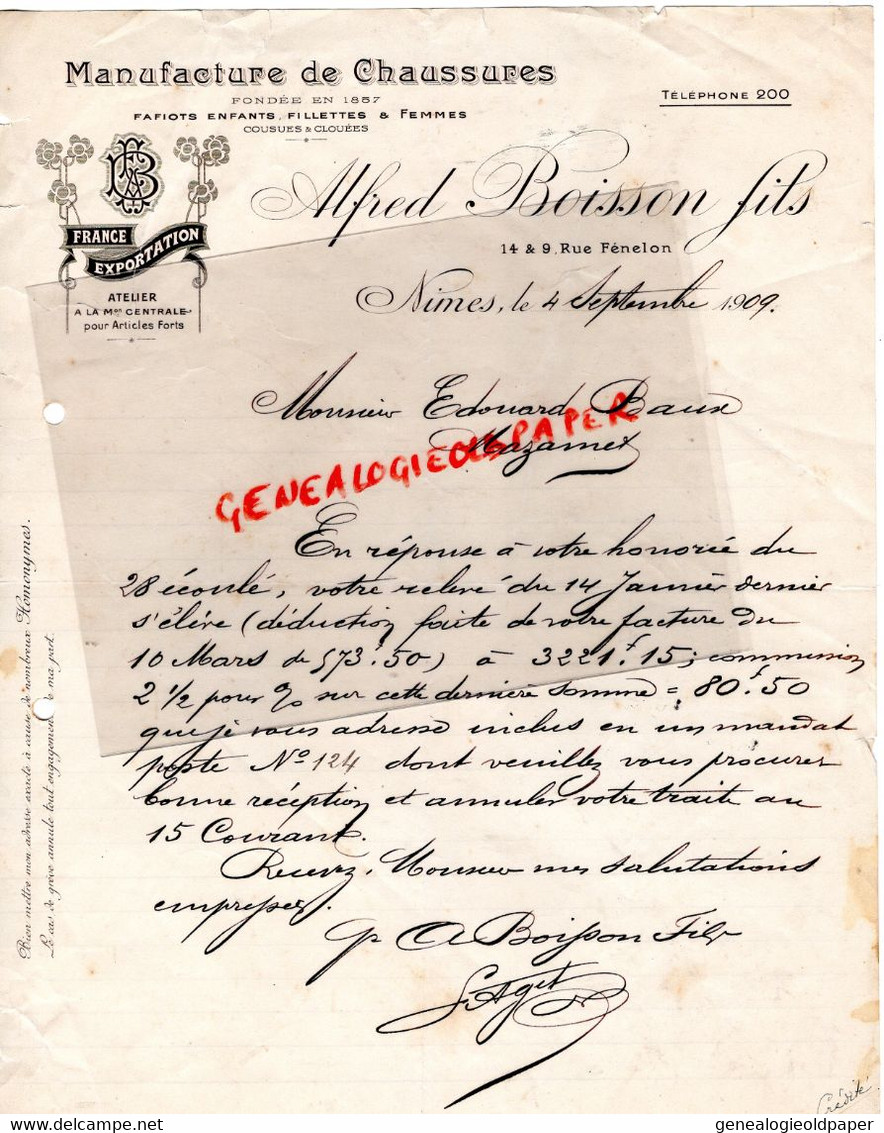 Manufacture de Chaussures
FONDÉE EN 1857
FAFIOTS ENFANTS, FILLETTES & FEMMES
COUSUES & CLOUÉES
TÉLÉPHONE 200
FRANCE
EXPORTATION
ATELIER
A LA Mon CENTRALE
pour Articles Forts
Alfred Boisson fils
14 & 9, Rue Fénelon
Nimes, le 4 Septembre 1909.
Monsieur Edouard Baux
Mazamet
GENEALOGIEOLDPAPER
En réponse à votre honorée du
28 écoulé, votre relevé du 14 Janvier dernier
s'élève (déduction faite de votre facture du
10 Mars de 573.50) à 3221f.15; commission
2 1/2 pour % sur cette dernière somme = 80f.50
que je vous adresse inclus en un mandat
poste No 124 dont veuillez vous procurer
bonne réception et annuler votre traite au
15 Courant.
Recevez, Monsieur mes salutations
empressées.
A Boisson Fils
Bien mettre mon adresse exacte à cause de nombreux Homonymes.
Le cas de grève annule tout engagement de ma part.
Crédité
delcampe.net
genealogieoldpaper